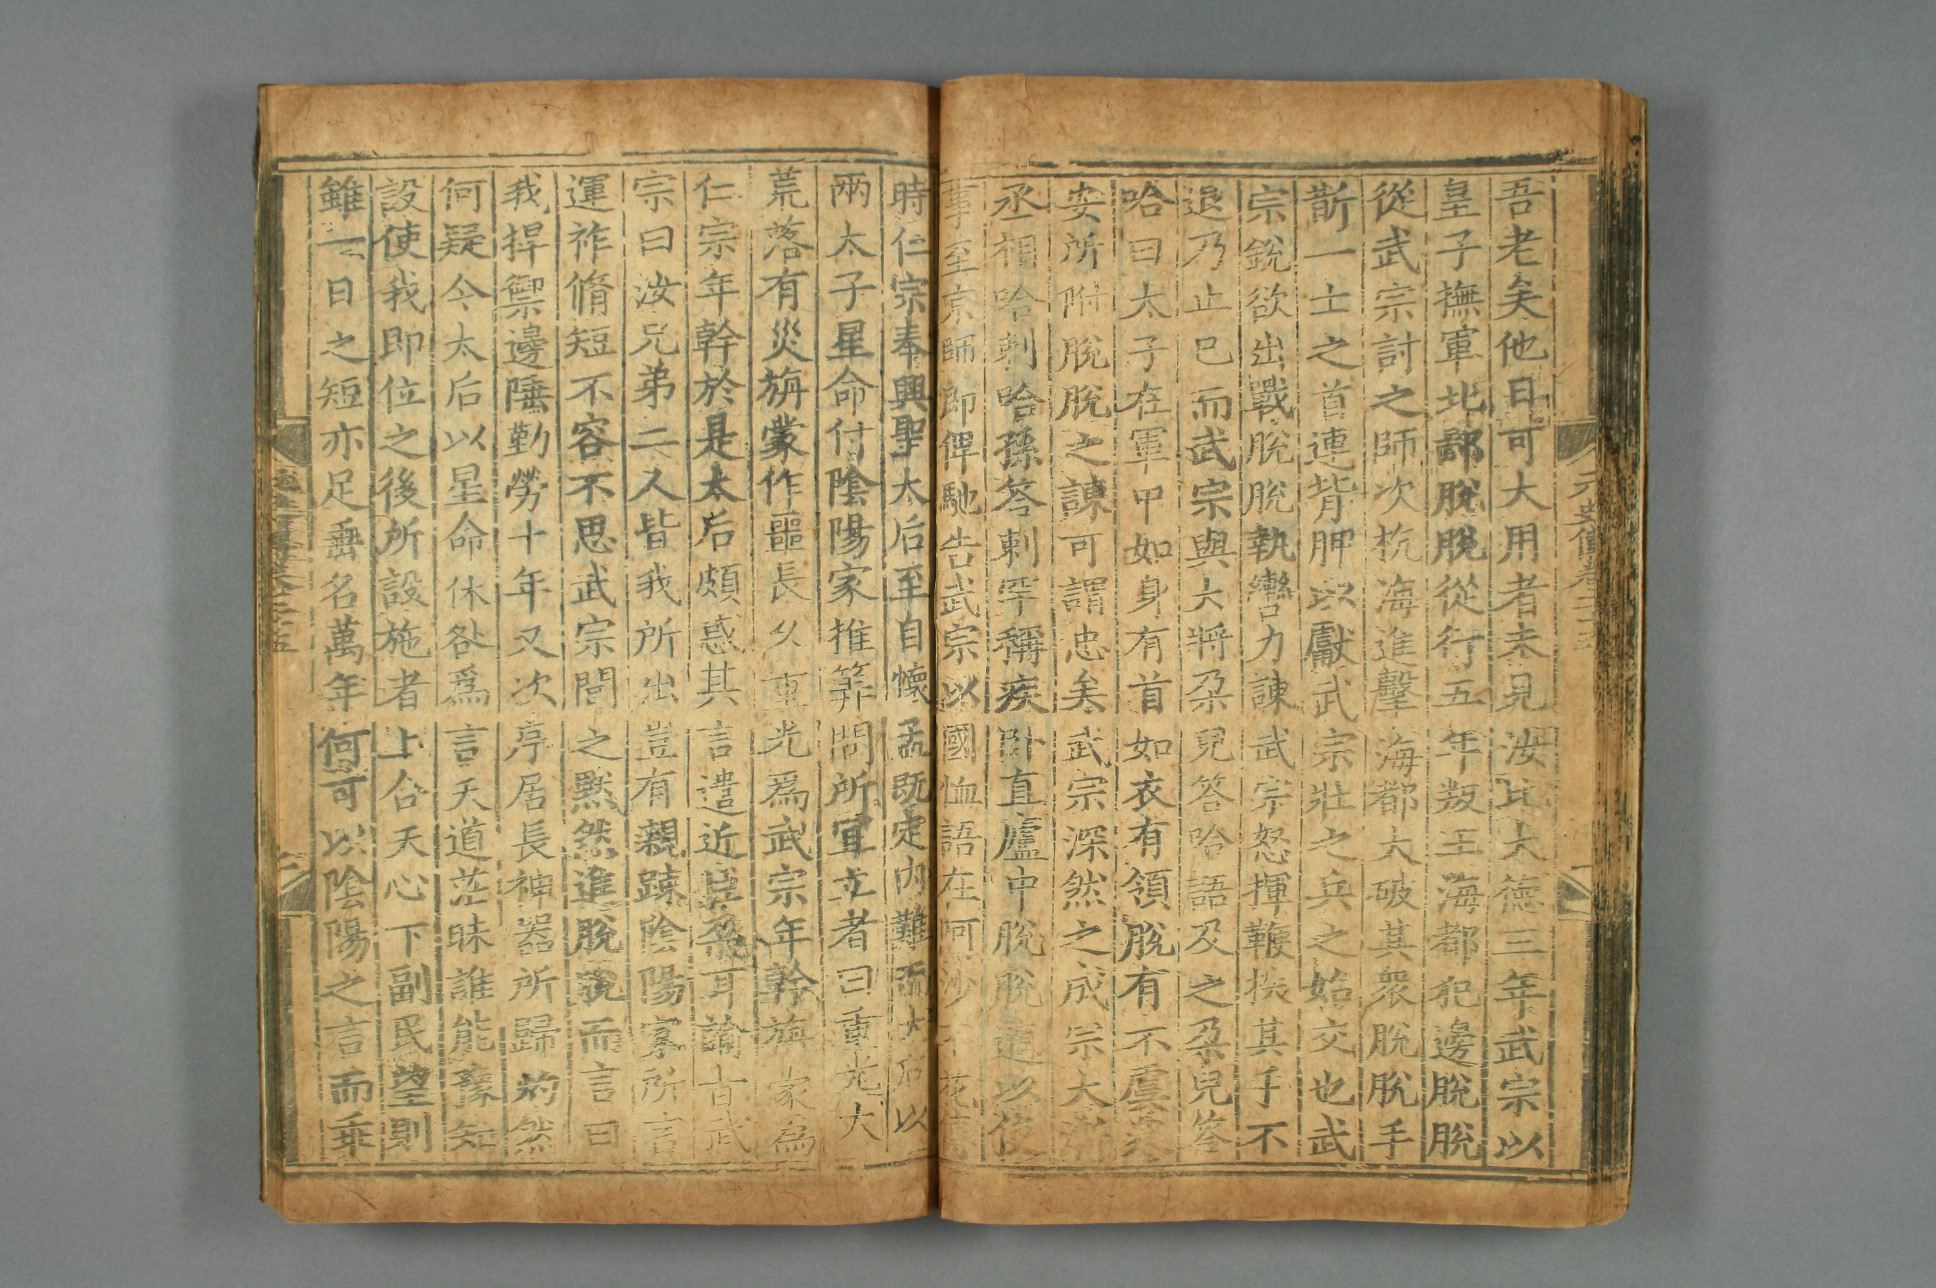 吾老矣他日可大用者未見汝比大德三年武宗以
皇子撫軍北鄙脫脫從行五年叛王海都犯邊脫脫
從武宗討之師次杭海進擊海都大破其衆脫脫手
斮一士之首連背胛以獻武宗壯之兵之始交也武
宗銳欲出戰脫脫執轡力諫武宗怒揮鞭抶其手不
退乃止已而武宗與大將朶兒答哈語及之朶兒答
哈曰太子在軍中如身有首如衣有領脫有不虞衆
安所附脫脫之諫可謂忠矣武宗深然之成宗大漸
丞相哈剌哈孫答剌罕稱疾卧直廬中脫脫適以使
事至京師即俾馳告武宗以國恤語在阿沙不花傳
時仁宗奉興聖太后至自懷孟既定內難而太后以
兩太子星命付陰陽家推筭問所宜立者曰重光大
荒落有災旃蒙作噩長久重光爲武宗年幹旃蒙爲
仁宗年幹於是太后頗惑其言遣近臣朶耳諭旨武
宗曰汝兄弟二人皆我所出豈有親踈陰陽家所言
運祚脩短不容不思武宗聞之默然進脫脫而言曰
我捍禦邊陲勤勞十年又次序居長神器所歸灼然
何疑今太后以星命休咎爲言天道茫昧誰能豫知
設使我即位之後所設施者上合天心下副民望則
雖一日之短亦足垂名萬年何可以陰陽之言而乖
元史傳卷二十五